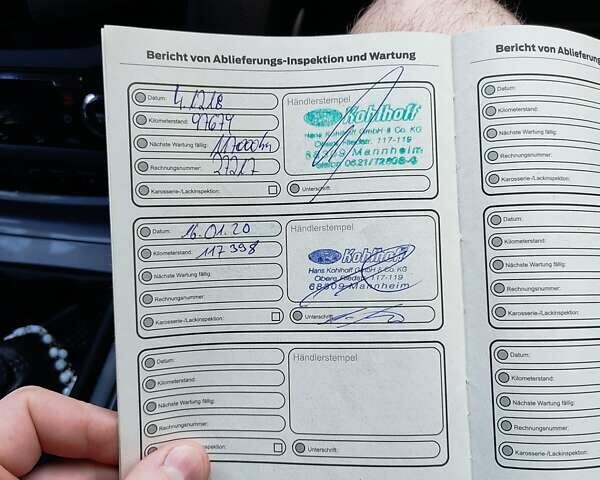 Bericht von Ablieferungs-Inspektion und Wartung
Datum: 4.12.18
Kilometerstand: 97679
Nächste Wartung fällig: 117000km
Rechnungsnummer: 27217
Karosserie-/Lackinspektion:
Händlerstempel
Kohlhoff
Hans Kohlhoff GmbH & Co. KG
Obere Riedstr. 117-119
68309 Mannheim
Unterschrift:
Datum: 16.01.20
Kilometerstand: 117 398
Nächste Wartung fällig
Rechnungsnummer:
Karosserie-/Lackinspektion:
Händlerstempel
Kohlhoff
Hans Kohlhoff GmbH & Co. KG
Obere Riedstr. 117-119
68309 Mannheim
Unterschrift:
Datum:
Kilometerstand:
Nächste Wartung fällig:
Rechnungsnummer:
Händlerstempel
Unterschrift:
Bericht von Ablieferung
Datum:
Kilometerstand:
Nächste Wartung fällig:
Rechnungsnummer:
Karosserie-/Lackinspektion:
Datum:
Kilometerstand:
Nächste Wartung fällig:
Rechnungsnummer:
Karosserie-/Lackinspektion:
Datum:
Kilometerstand:
Nächste Wartung fällig:
Rechnungsnummer:
Karosserie-/Lackinspektion: